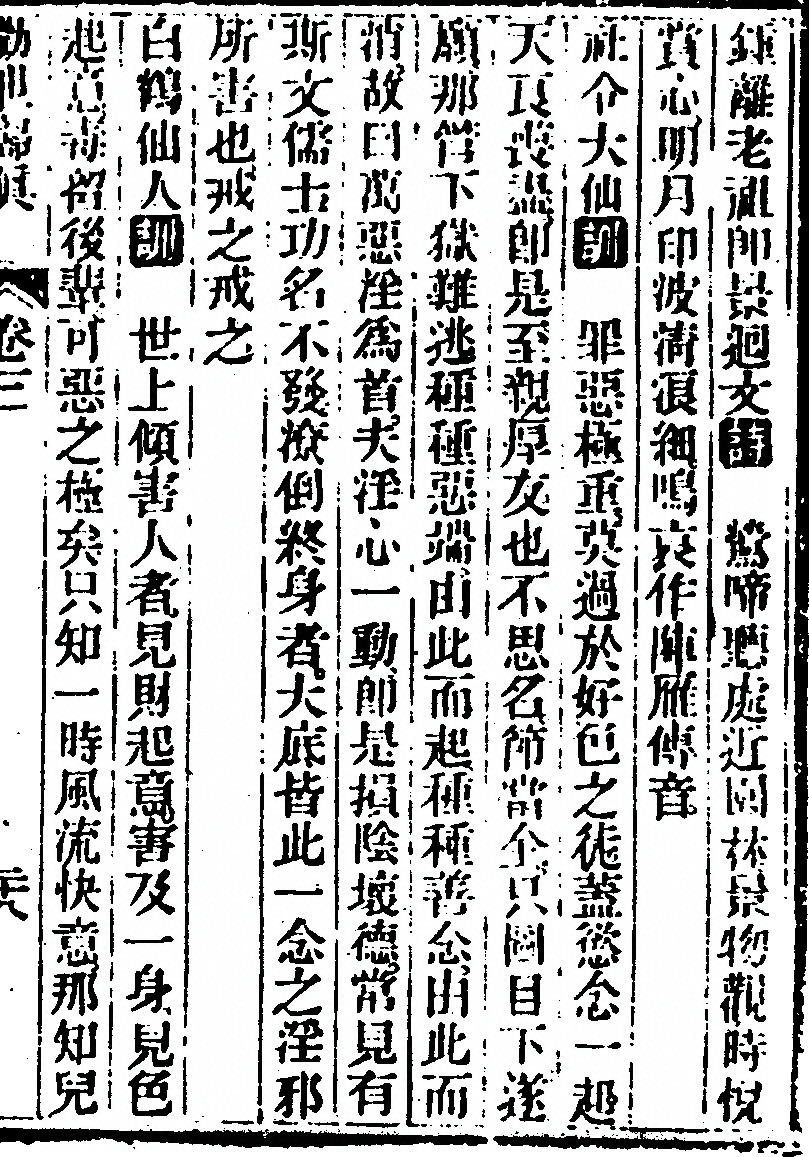 鍾離老祖即景廻文詩　鶯啼聽處近園林景物觀時悅
賞心明月印波濤浪細鳴哀作陣雁傳音
社令大仙訓　罪惡極重莫過於好色之徒蓋慾念一起
天良喪盡即是至親厚友也不思名節當全只圖目下遂
願那管下獄難逃種種惡端由此而起種種善念由此而
消故曰萬惡淫為首夫淫心一動即是損陰壞德常見有
斯文儒士功名不發潦倒終身者大底皆此一念之淫邪
所害也戒之戒之
白鶴仙人訓　世上傾害人者見財起意害及一身見色
起意毒留後輩可惡之極矣只知一時風流快意那知兒
卷三